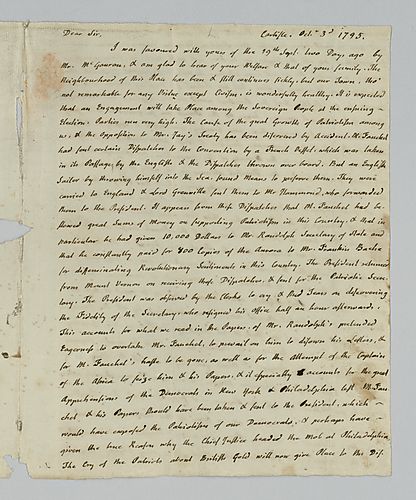 Dear Sir, Carlisle. Octr. 3d 1795.
I was favoured with yours of the 29th Sept. two Days ago by
Mr. McGowan, & am glad to hear of your Welfare & that of your family. The
Neighbourhood of this Place has been & still continues sickly, but our Town, tho'
not remarkable for any Virtue except Civism, is wonderfully healthy. It is expected
that an Engagement will take Place among the Sovereign People at the ensuing
Election. Parties run very high. The Cause of the great Growth of Patriotism among
us, & the Opposition to Mr. Jay's Treaty has been discovered by Accident. M. Fauchet
had sent certain Dispatches to the Convention by a French Vessel which was taken
in its Passage by the English & the Dispatches thrown over board. But an English
Sailor by throwing himself into the Sea found Means to preserve them. They were
carried to England & Lord Grenville sent them to Mr. Hammond, who forwarded
them to the President. It appears from these Dispatches that M. Fauchet had be-
stowed great Sums of Money on supporting Patriotism in this Country, & that in
particular he had given 10,000 Dollars to Mr. Randolph Secretary of State and
that he constantly paid for 800 Copies of the Aurora to Mr. Franklin Bache
for disseminating Revolutionary Sentiments in this Country. The President returned
from Mount Vernon on receiving these Dispatches, & sent for the Patriotic Secre-
tary. The President was observed by the Clerks to cry & shed Tears on discovering
the Perfidy of the Secretary, who resigned his Office half an hour afterwards.
This accounts for what we read in the Papers, of Mr. Randolph's pretended
Eagerness to overtake Mr. Fauchet, to prevail on him to disown his Letters, &
for M. Fauchet's haste to be gone, as well as for the attempt of the Captain
of the Africa to seize him & his Papers; & it especially accounts for the great
Apprehensions of the Democrats in New York & Philadelphia lest M. Fau
chet, & his Papers should have been taken & sent to the President, which
would have exposed the Patriotism of our Democrats, & perhaps have
given the true Reason why the Chief Justice headed the Mob at Philadelphia
The Cry of the Patriots about British Gold will now give Place to the Dis-